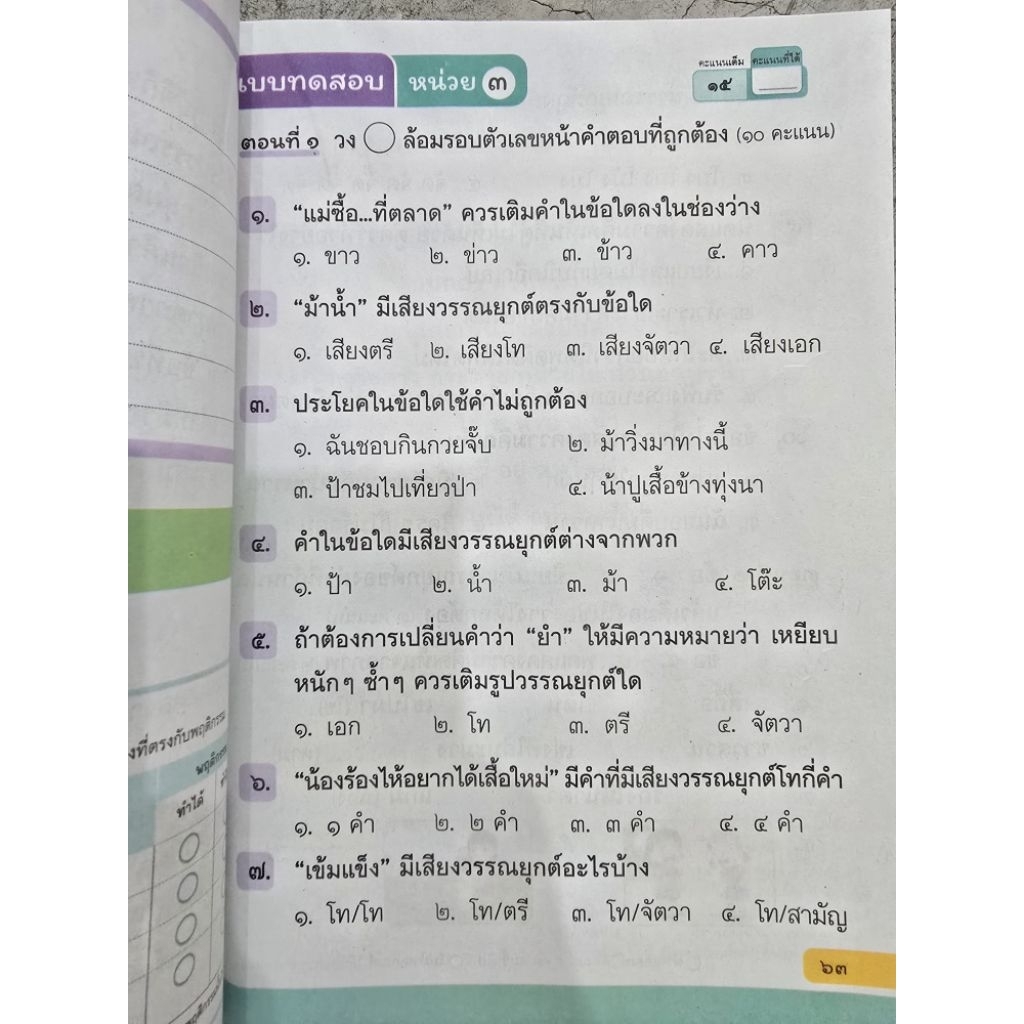 แบบทดสอบ หน่วย ๓
คะแนนเต็ม คะแนนที่ได้
๑๕
ตอนที่ ๑ วง ล้อมรอบตัวเลขหน้าคำตอบที่ถูกต้อง (๑๐ คะแนน)
๑. “แม่ซื้อ...ที่ตลาด” ควรเติมคำในข้อใดลงในช่องว่าง
๑. ขาว ๒. ข่าว ๓. ข้าว ๔. คาว
๒. “ม้าน้ำ” มีเสียงวรรณยุกต์ตรงกับข้อใด
๑. เสียงตรี ๒. เสียงโท ๓. เสียงจัตวา ๔. เสียงเอก
๓. ประโยคในข้อใดใช้คำไม่ถูกต้อง
๑. ฉันชอบกินกวยจั๊บ ๒. ม้าวิ่งมาทางนี้
๓. ป้าชมไปเที่ยวป่า ๔. น้าปูเสื้อข้างทุ่งนา
๔. คำในข้อใดมีเสียงวรรณยุกต์ต่างจากพวก
๑. ป้า ๒. น้ำ ๓. ม้า ๔. โต๊ะ
๕. ถ้าต้องการเปลี่ยนคำว่า “ยำ” ให้มีความหมายว่า เหยียบ
หนักๆ ซ้ำๆ ควรเติมรูปวรรณยุกต์ใด
๑. เอก ๒. โท ๓. ตรี ๔. จัตวา
๖. “น้องร้องไห้อยากได้เสื้อใหม่” มีคำที่มีเสียงวรรณยุกต์โทกี่คำ
๑. ๑ คำ ๒. ๒ คำ ๓. ๓ คำ ๔. ๔ คำ
๗. “เข้มแข็ง” มีเสียงวรรณยุกต์อะไรบ้าง
๑. โท/โท ๒. โท/ตรี ๓. โท/จัตวา ๔. โท/สามัญ
๖๓
งที่ตรงกับพฤติกรรม
ทำได้